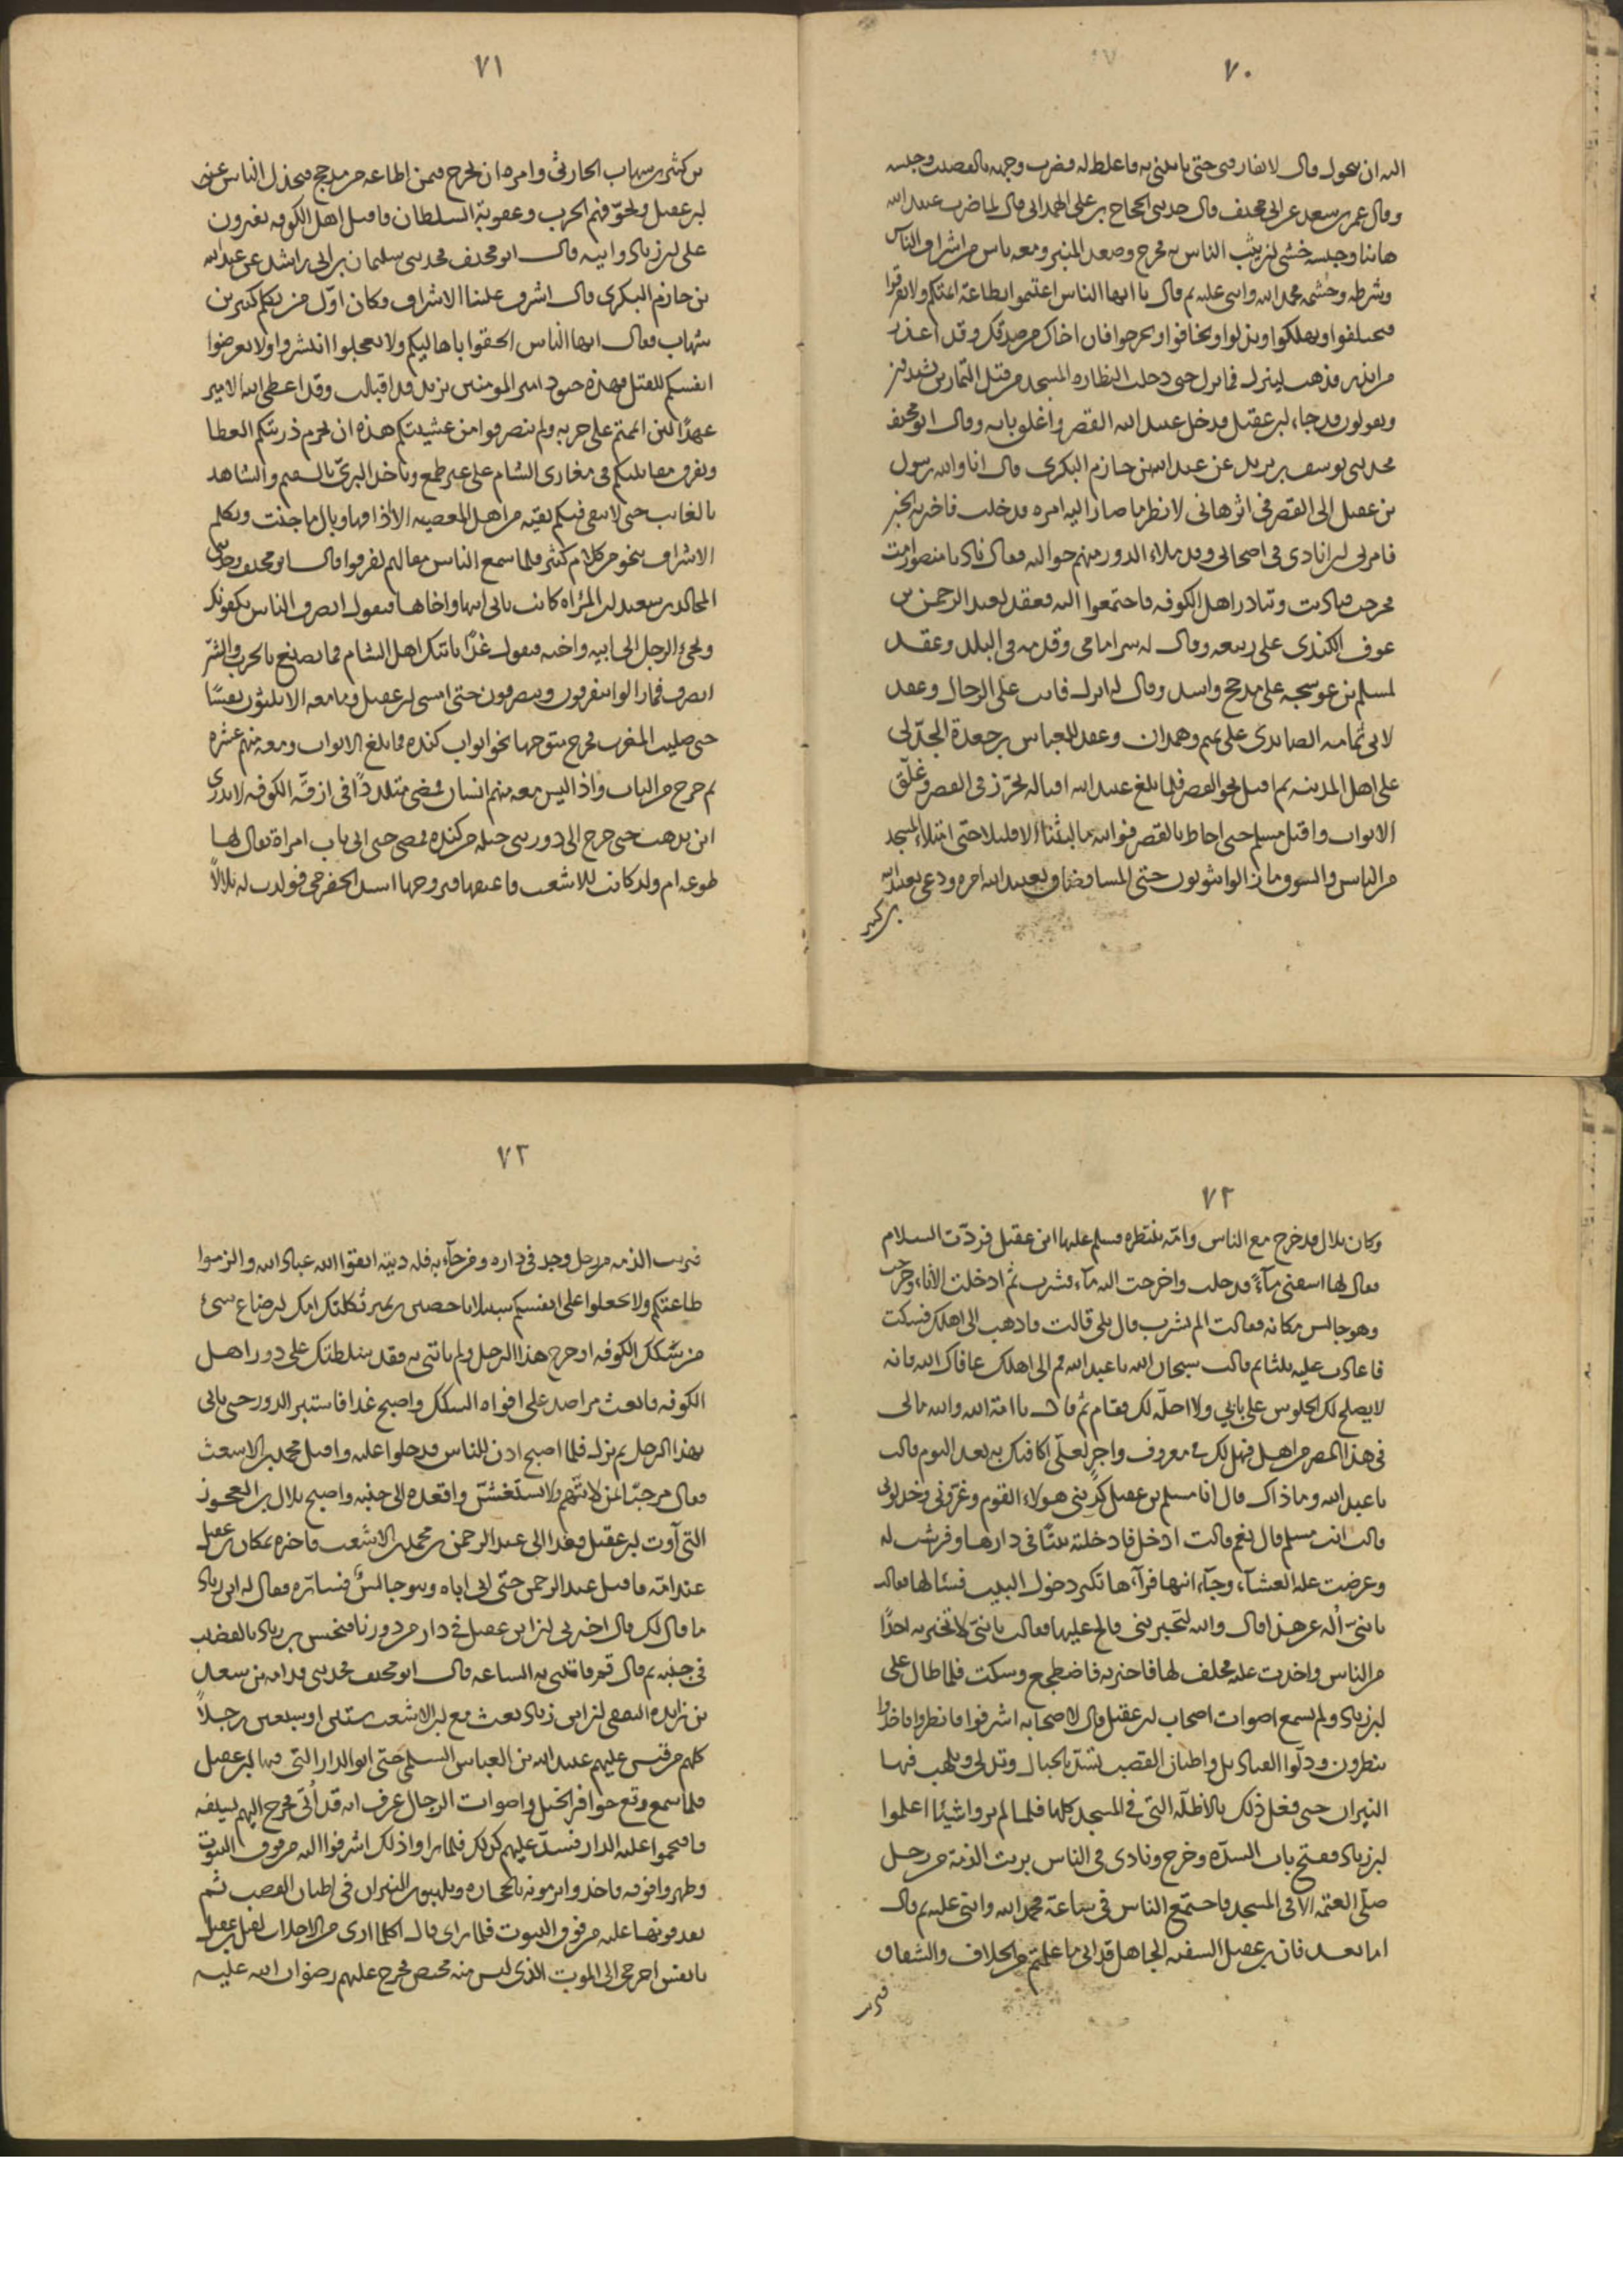 ٧٠
الله ان يحول وقال لا تفارقني حتى تاتيني به فاغلظ له فضرب وجهه بالقضيب وحبسه
وقال عمر بن سعد عن ابي مخنف قال حدثني الحجاج بن علي الهمداني قال لما ضرب عبيد الله
هانئا وحبسه خشي ان يثب الناس به فخرج وصعد المنبر ومعه ناس من اشراف الناس
وشرطه وحشمه فحمد الله واثنى عليه ثم قال يا ايها الناس اعتصموا بطاعة ائمتكم ولا تفرقوا
فتختلفوا وتهلكوا وتذلوا وتخافوا وتخرجوا فان اخاك من صدقك وقد اعذر
من انذر فذهب لينزل فما نزل حتى دخلت النظارة المسجد من قبل التمارين يشتدون
ويقولون قد جاء ابن عقيل فدخل عبيد الله القصر واغلق بابه وقال ابو مخنف
فحدثني يوسف بن يزيد عن عبد الله بن حازم البكري قال انا والله رسول
بن عقيل الى القصر في اثر هاني لانظر ما صار اليه امره فدخلت فاخبرته الخبر
فامرني ان انادي في اصحابي وقد ملاء الدور منهم حواليه فقال ناد يا منصور امت
فخرجت فناديت وتبادر اهل الكوفة فاجتمعوا اليه فعقد لعبد الرحمن بن
عوف الكندي على ربيعه وقال له سر امامي وقدمه في البلد وعقد
لمسلم بن عوسجه على مذحج واسد وقال له انزل فانت على الرجال وعقد
لابي ثمامه الصائدي على تميم وهمدان وعقد للعباس بن جعدة الجدلي
على اهل المدينه ثم اقبل نحو القصر فلما بلغ عبيد الله اقباله تحرز في القصر وغلق
الابواب واقبل مسلم حتى احاط بالقصر فوالله ما لبثنا الا قليلا حتى امتلاء المسجد
من الناس والسوق ما زالوا يتوثبون حتى المسا فضاق بعبيد الله امره ودعى بعبيد الله
بن كثير
٧١
بن كثير بن شهاب الحارثي وامره ان يخرج فيمن اطاعه من مذحج فيخذل الناس عن
ابن عقيل ويخوفهم الحرب وعقوبة السلطان فاقبل اهل الكوفه يفترون
على ابن زياد وابيه وقال ابو مخنف فحدثني سليمان بن ابي راشد عن عبد الله
بن حازم البكري قال اشرف علينا الاشراف وكان اول من تكلم كثير بن
شهاب فقال ايها الناس الحقوا باهاليكم ولا تعجلوا انتشروا ولا تعرضوا
انفسكم للقتل فهذه جنود امير المومنين يزيد قد اقبلت وقد اعطى الله الامير
عهدا لئن اتممتم على حربه ولم تنصرفوا من عشيتكم هذه ان يحرم ذريتكم العطا
ويفرق مقاتليكم في مغازي الشام على غير طمع وياخذ البري بالسقيم والشاهد
بالغائب حتى لا يبقى فيكم بقيه من اهل المعصيه الا اذاقها وبال ما جنت وتكلم
الاشراف بنحو من كلام كثير فلما سمع الناس مقالهم تفرقوا قال ابو مخنف وحدثني
المجالد بن سعيد ان المراه كانت تاتي ابنها واخاها فيقول انصرف الناس يكفونك
ويجئ الرجل الى ابيه واخيه فيقول غدا ياتيك اهل الشام فما تصنع بالحرب والشر
انصرف فما زالوا يتفرقون وينصرفون حتى امسى ابن عقيل وما معه الا ثلثون نفسا
حتى صليت المغرب فخرج متوجها نحو ابواب كنده فما بلغ الابواب ومعه منهم عشره
ثم خرج من الباب واذا ليس معه منهم انسان فمضى متلددا في ازقة الكوفه لا يدري
اين يذهب حتى خرج الى دور بني جبله من كنده فمضى حتى اتى باب امراة يقال لها
طوعه ام ولد كانت للاشعث فاعتقها فتزوجها اسيد الحضرمي فولدت له بلالا
٧٢
وكان بلال قد خرج مع الناس وامه تنتظره فسلم عليها ابن عقيل فردت السلام
فقال لها اسقني ماء فدخلت واخرجت اليه ماء فشرب ثم ادخلت الاناء وخرجت
وهو جالس مكانه فقالت الم تشرب قال بلى قالت فاذهب الى اهلك فسكت
فاعادت عليه ثلثا ثم قالت سبحان الله يا عبد الله قم الى اهلك عافاك الله فانه
لا يصلح لك الجلوس على بابي ولا احله لك فقام ثم قال يا امة الله والله مالي
في هذا المصر من اهل فهل لك في معروف واجر لعلي اكافئك به بعد اليوم قالت
يا عبد الله وما ذاك قال انا مسلم بن عقيل كذبني هولاء القوم وغروني وخذلوني
قالت انت مسلم قال نعم قالت ادخل فادخلته بيتا في دارها وفرشت له
وعرضت عليه العشاء وجاء ابنها فرآها تكثر دخول البيت فسئالها فقالت
يا بني اله عن هذا قال والله لتخبرينني والح عليها فقالت يا بني لا تخبر به احدا
من الناس واخذت عليه فحلف لها فاخبرته فاضطجع وسكت فلما طال على
ابن زياد ولم يسمع اصوات اصحاب ابن عقيل قال لاصحابه اشرفوا فانظروا فاخذوا
ينظرون ودلوا القناديل واطنان القصب تشد بالحبال وتدلى وتلهب فيها
النيران حتى فعل ذلك بالاظلة التي في المسجد كلها فلما لم يروا شيئا اعلموا
ابن زياد ففتح باب السدة وخرج ونادى في الناس برئت الذمة من رجل
صلى العتمه الا في المسجد فاجتمع الناس في ساعة فحمد الله واثنى عليه ثم قال
اما بعد فان بن عقيل السفيه الجاهل قد اتى ما علمتم من الخلاف والشقاق
فبرئت
٧٣
فبرئت الذمه من رجل وجد في داره ومن جاء به فله ديته اتقوا الله عباد الله والزموا
طاعتكم ولا تجعلوا على انفسكم سبيلا يا حصين بن تمير ثكلتك امك ان ضاع شئ
من سكك الكوفه او خرج هذا الرجل ولم تاتني به فقد سلطتك على دور اهل
الكوفه فابعث مراصد على افواه السكك واصبح غدا فاستبر الدور حتى تاتي
بهذا الرجل ثم نزل فلما اصبح اذن للناس فدخلوا عليه واقبل محمد بن الاشعث
فقال مرحبا بمن لا يتهم ولا يستغش واقعده الى جنبه واصبح بلال بن العجوز
التي آوت ابن عقيل فغدا الى عبد الرحمن بن محمد بن الاشعث فاخبره بمكان بن عقيل
عند امه فاقبل عبد الرحمن حتى اتى اباه وهو جالس فساره فقال له ابن زياد
ما قال لك قال اخبرني ان ابن عقيل في دار من دورنا فنخس بن زياد بالقضيب
في جنبه ثم قال قم فاتني به الساعه قال ابو مخنف فحدثني قدامه بن سعد
بن زايدة الثقفي ان ابن زياد بعث مع ابن الاشعث ستين او سبعين رجلا
كلهم من قيس عليهم عبيد الله بن العباس السلمي حتى اتوا الدار التي فيها ابن عقيل
فلما سمع وقع حوافر الخيل واصوات الرجال عرف انه قد أتي فخرج اليهم بسيفه
فاقتحموا عليه الدار فشد عليهم كذلك فلما راوا ذلك اشرفوا اليه من فوق البيوت
وظهروا فوقه فاخذوا يرمونه بالحجاره ويلهبون النيران في اطنان القصب ثم
يقذفونها عليه من فوق البيوت فلما راى قال اكلما ارى من الاجلاب لقتل بن عقيل
يا نفس اخرجي الى الموت الذي ليس منه محيص فخرج عليهم رضوان الله عليه